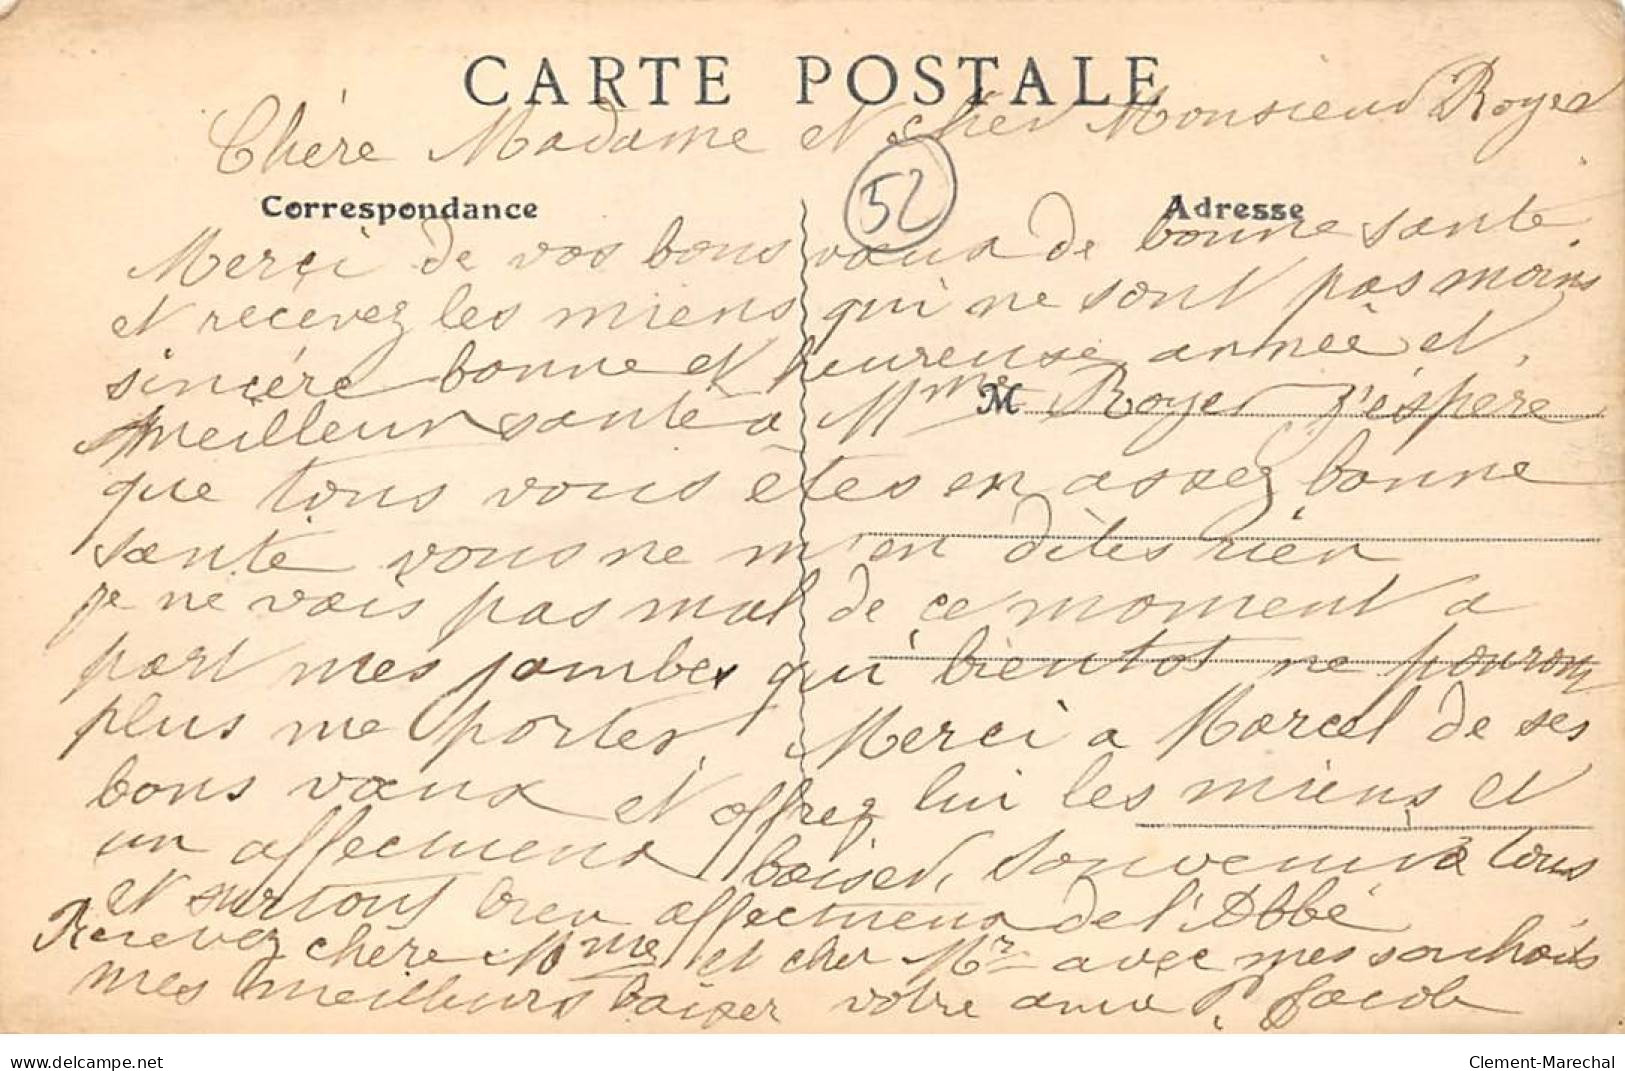 CARTE POSTALE
Chére Madame et cher Monsieur Royer
52
Correspondance
Adresse
Merçi de vos bons vœux de bonne santé.
et recevez les miens qui ne sont pas moins
sincére bonne et heureuse année et
meilleur santé a Mme Royer J'éspére
M
que tous vous êtes en assez bonne
santé vous ne m'en dites rien
je ne vais pas mal de ce moment a
part mes jambes qui bientot ne pouron
plus me porter. Merci a Marcel de ses
bons vœux et offrez lui les miens et
un affectueux baiser, Souvenir a tous
et surtout bien affectueux de l'Abbé
Recevez chére Mme et cher Mr avec mes souhaits
mes meilleurs baiser votre amie P. Jacob
delcampe.net
Clement-Marechal